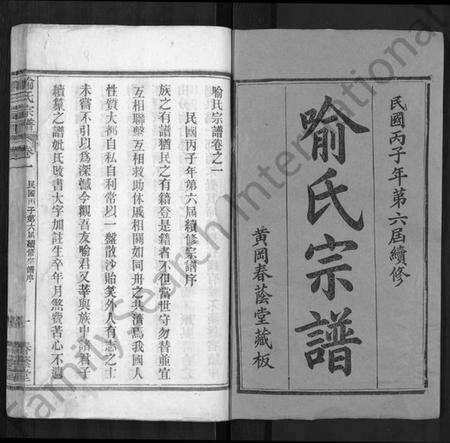 民國丙子年第六屆續修
喻氏宗譜
黃岡春蔭堂藏板
喻氏宗譜卷之一
民國丙子年第六屆續修宗譜序
族之有譜猶民之有籍登是籍者不但當世守勿替並宜
互相聯繫互相救助休戚相關如同舟之共濟焉我國人
性質大都自私自利常以一盤散沙貽笑外人有識之士
未嘗不引以為深憾今觀吾友喻君又莘與族中諸君子
續纂之譜紙氏敗書大字加註生卒年月煞費苦心不遺
喻氏宗譜
卷一
民國丙子第六屆續修宗譜序
一
春蔭堂
FamilySearch International